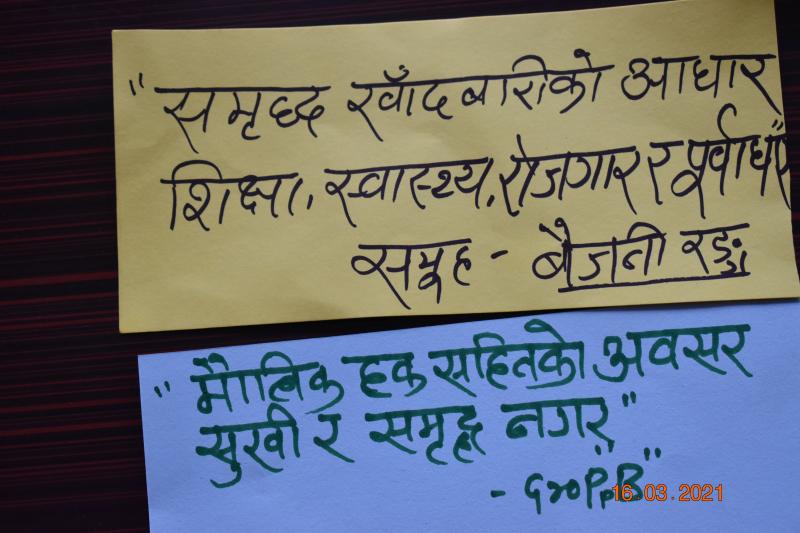 "समृध्द खाँदबारीको आधार
शिक्षा, स्वास्थ्य, रोजगार र पूर्वाधार"
समूह - बैजनी रङ्ग
"मौलिक हक सहितको अवसर
सुखी र समृद्ध नगर"
- Group "B"
16.03.2021